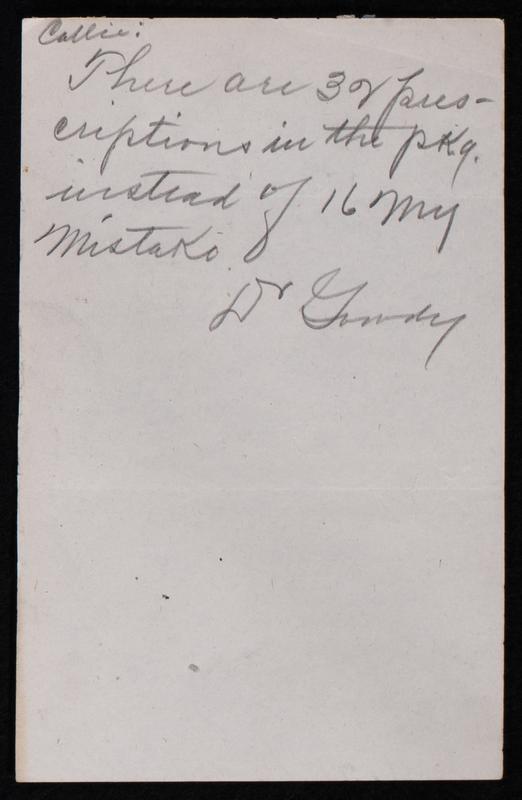 Callie:
There are 32 pres-
criptions in the pkg.
instead of 16 My
Mistake
Dr Gowdy